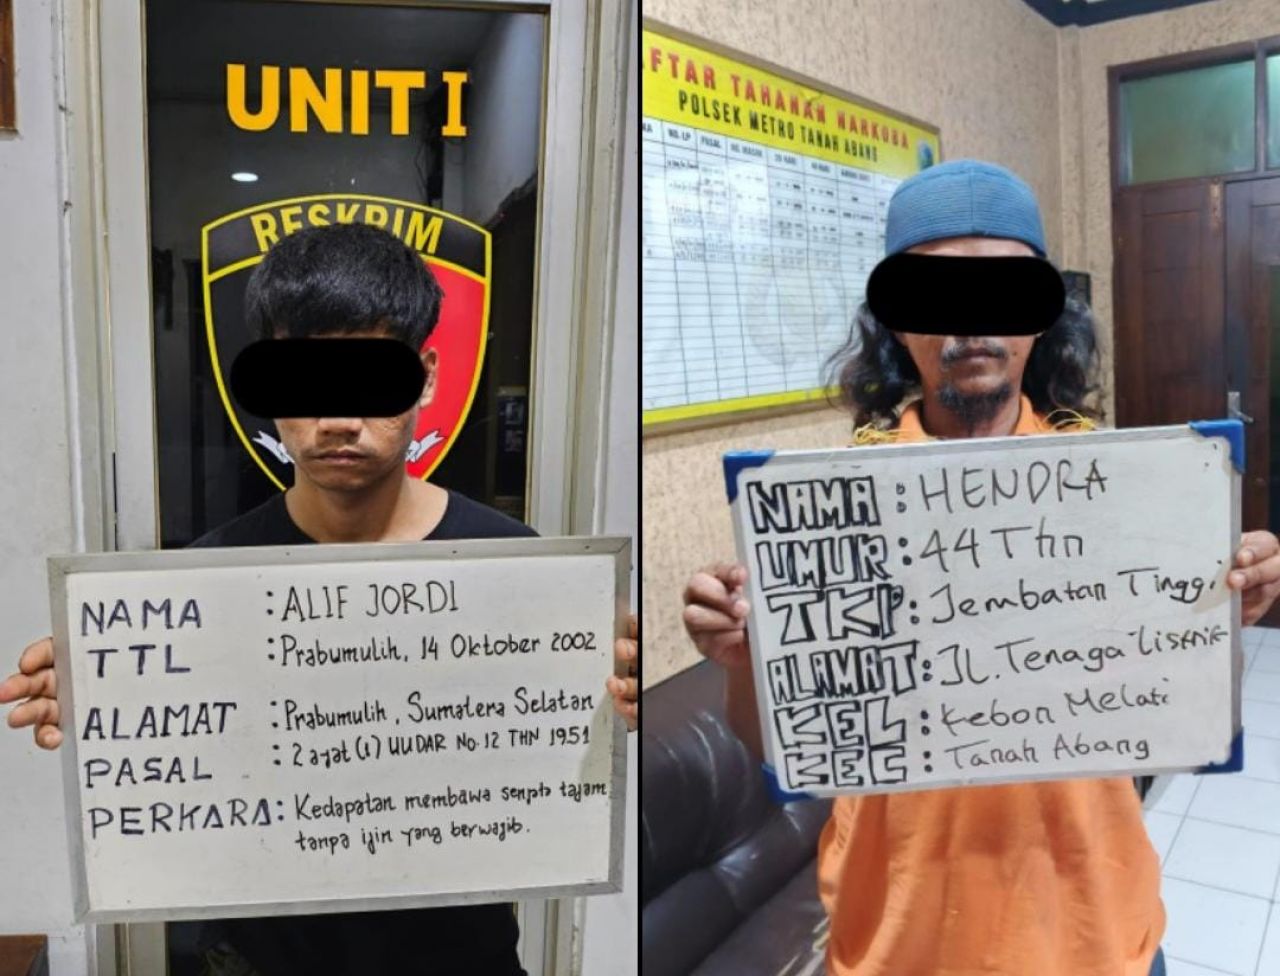 UNIT I
RESKRIM
NAMA : ALIF JORDI
TTL : Prabumulih, 14 Oktober 2002
ALAMAT : Prabumulih, Sumatera Selatan
PASAL : 2 ayat (1) UU DAR No. 12 THN 1951
PERKARA : Kedapatan membawa senpta tajam
tanpa ijin yang berwajib.
FTAR TAHANAN NARKOBA
POLSEK METRO TANAH ABANG
NO. LP PASAL
NAMA : HENDRA
UMUR : 44 Thn
TKP : Jembatan Tinggi
ALAMAT : JL. Tenaga Listrik
KEL : Kebon Melati
KEC : Tanah Abang